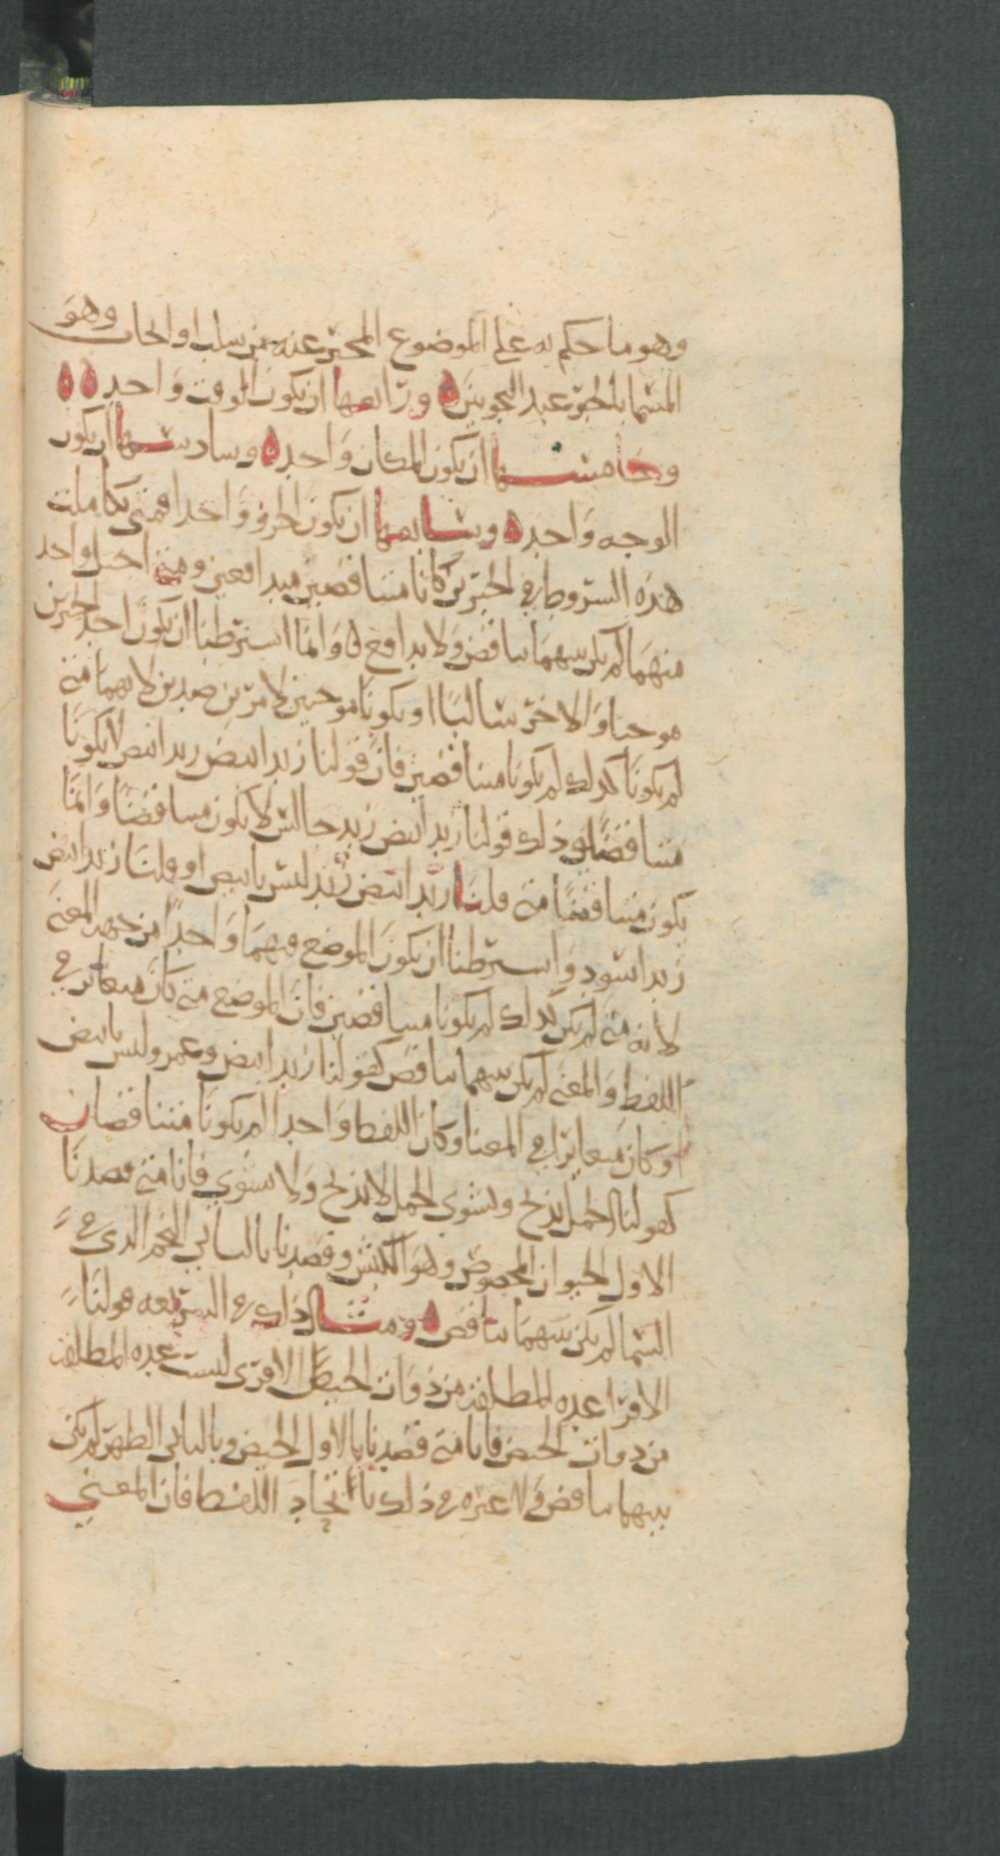 وهو ما حكم به على الموضوع المخبر عنه من سلب او ايجاب وهو
المسما بالخبر عند النحويين ه ورابعها ان يكون الوقت واحد ه ه
وخامسها ان يكون المكان واحد ه وسادسها ان يكون
الوجه واحد ه وسابعها ان يكون الحرف واحدا فمتى تكاملت
هذه الشروط في الخبرين كانا متناقضين متدافعين ومتى اختل واحد
منهما لم يكن بينهما تناقض ولا تدافع ه وانما اشترطنا ان يكون احد الخبرين
موجبا والاخر سالبا او يكونا موجبين لامرين ضدين لانهما متى
لم يكونا كذلك لم يكونا متناقضين فان قولنا زيد ابيض زيد ابيض لا يكونا
متناقضا وذلك قولنا زيد ابيض زيد جالس لا يكون متناقضا وانما
يكون متناقضا متى قلنا زيد ابيض زيد ليس بابيض او قلنا زيد ابيض
زيد اسود واشترطنا ان يكون الموضع فيهما واحدا من جهة المعنى
لانه متى لم يكن كذلك لم يكونا متناقضين فان الموضع متى كان متغاير في
اللفظ والمعنى لم يكن بينهما تناقض كقولنا زيد ابيض وعمرو ليس بابيض
او كان متغايرا في المعنا وكان اللفظ واحدا لم يكونا متناقضان
كقولنا الحمل يذبح ويشوى الحمل لا يذبح ولا يشوى فانا متى قصدنا
الاول الحيوان المخصوص وهو الكبش وقصدنا بالثاني النجم الذي في
السما لم يكن بينهما تناقض ه ومثال ذلك في الشريعة قولنا
الاقرا عدة المطلقة من ذوات الحيض الاقرى ليست عدة المطلقة
من ذوات الحيض فانا متى قصدنا بالاول الحيض وبالثاني الطهر لم يكن
بينهما تناقض ولا عبرة في ذلك باتحاد اللفظ فان المعنى